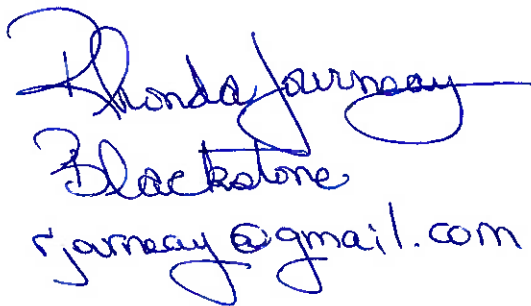 Rhonda Journeay
Blackstone
rjourneay@gmail.com